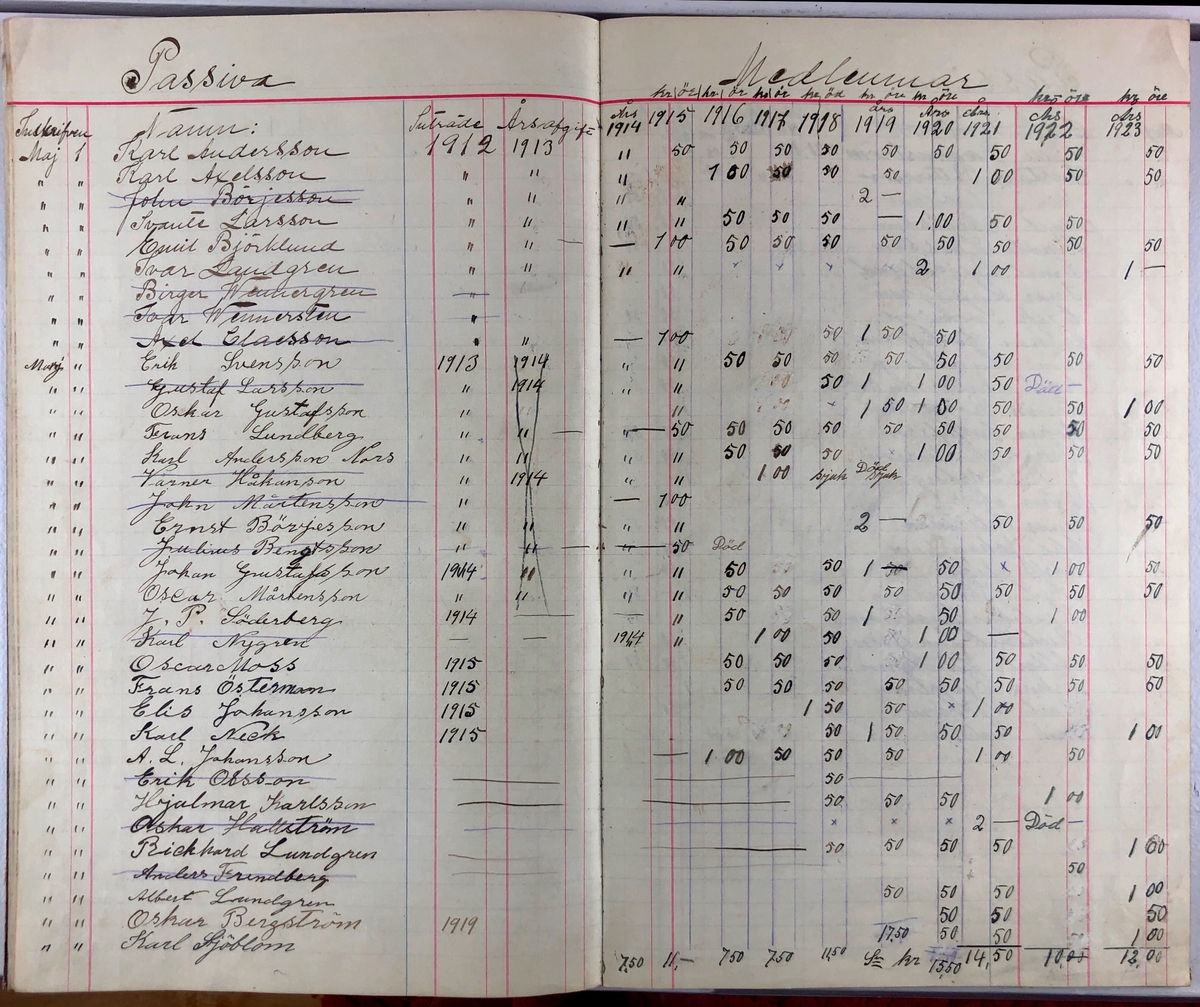 Passiva Medlemmar
kr öre kr. öre kr öre kr öd kr öre kr. öre kr öre kr öre
Inskrifven Namn: Inträde Årsafgift Års 1914 1915 1916 1917 1918 Års 1919 Års 1920 Års 1921 Års 1922 Års 1923
Maj 1 Karl Andersson 1912 1913 " 50 50 50 50 50 50 50 50 50
" " Karl Axelsson " " " 1 00 50 50 50 1 00 50 50
" " John Börjesson " " " " 2 —
" " Svante Larsson " " " " 50 50 50 — 1.00 50 50
" " Emil Björklund " " — — 1 00 50 50 50 50 50 50 50 50
" " Ivar Lundgren " " " " × × × 2 1 00 1 —
" " Birger Wennergren "
" " Ivar Wennersten "
" " Axel Claesson " " — 1 00 50 1 50 50
Maj " Erik Svensson 1913 1914 " " 50 50 50 50 50 50 50 50
" " Gustaf Larsson " 1914 " " 50 1 1 00 50 Död —
" " Oskar Gustafsson " " " × 1 50 1 00 50 50 1 00
" " Frans Lundberg " " — " — 50 50 50 50 50 50 50 50 50
" " Karl Andersson Nors " " " " 50 50 50 × 1 00 50 50 50
" " Varner Håkanson " 1914 " " 1 00 sjuk Död sjuk
" " John Mårtensson " — 1 00
" " Ernst Börjesson " " " " 2 — 50 50 50
" " Julius Bengtsson " " — " — 50 Död
" " Johan Gustafsson 1914 " " " 50 50 1 50 50 × 1 00 50
" " Oscar Mårtensson " " " " 50 50 50 50 50 50 50 50
" " J. P. Söderberg 1914 — — " 50 50 1 50 1 00
" " Karl Nygren — — 1914 " 1 00 50 1 00 —
" " Oscar Moss 1915 50 50 50 1 00 50 50 50
" " Frans Österman 1915 50 50 50 50 50 50 50 50
" " Elis Johansson 1915 1 50 50 × 1 00
" " Karl Neck 1915 50 1 50 50 50 1 00
" " A. L. Johansson — 1 00 50 50 50 1 00 50
" " Erik Olsson — — 50 —
" " Hjalmar Karlsson — — 50 50 50 1 00
" " Oskar Hallström — — × × × 2 — Död —
" " Rickhard Lundgren — — 50 50 50 50 1 00
" " Anders Frendberg — 50
" " Albert Lundgren 50 50 50 1 00
" " Oskar Bergström 1919 50 50 50
" " Karl Sjöblom 17,50 50 50 1 00
7,50 11,— 7,50 7,50 11,50 kr 15,50 14,50 10,00 12,00